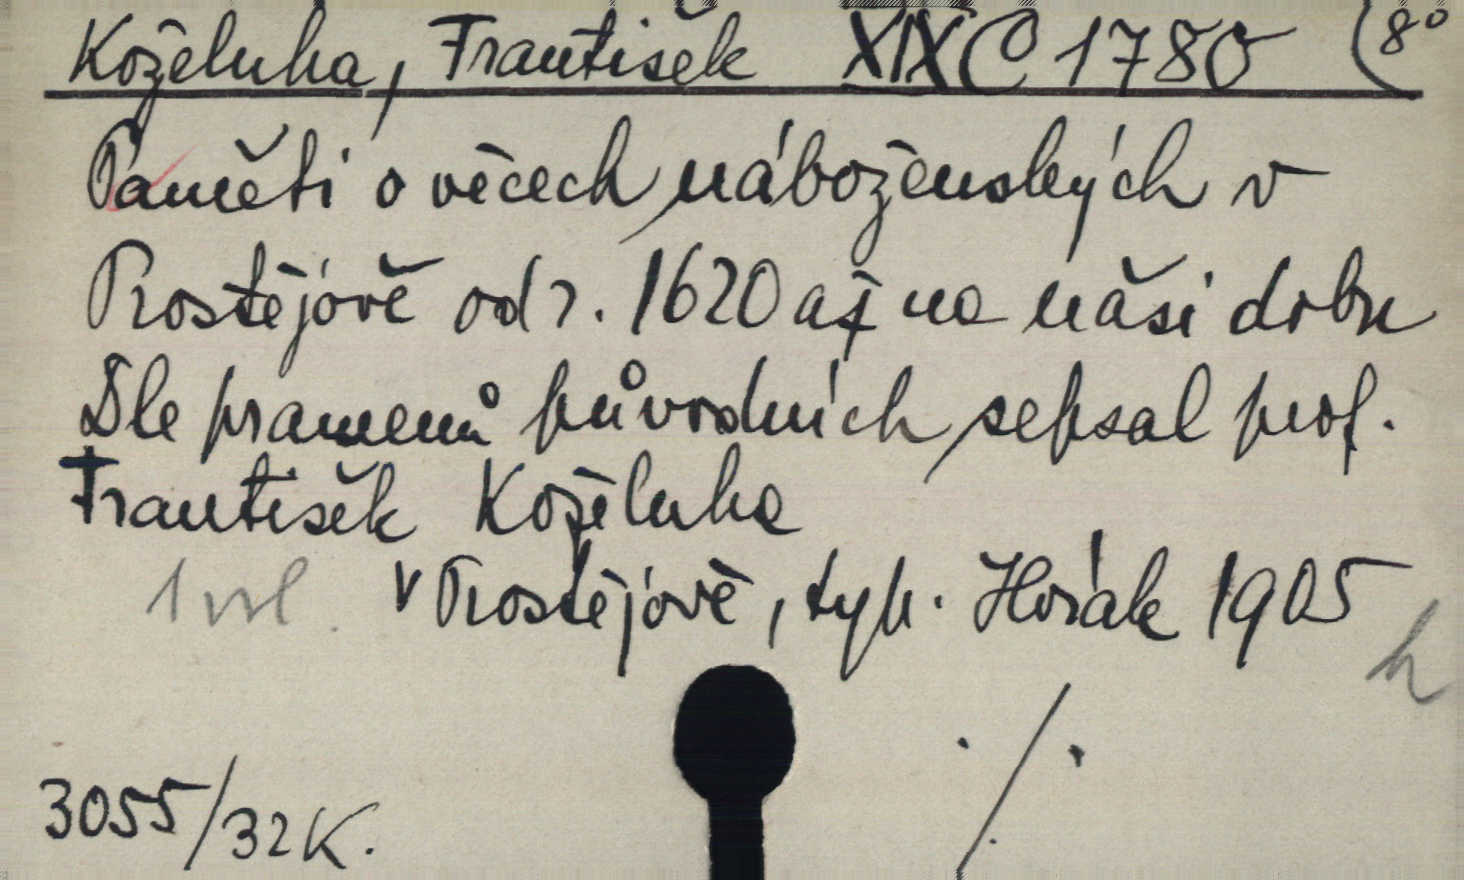 Koželuha, František XIX C 1780 (8°
Paměti o věcech náboženských v
Prostějově od r. 1620 až na naši dobu
Dle pramenů původních sepsal prof.
František Koželuha
1 vol. v Prostějově, typ. Horák 1905
h
3055/32 K. ./.